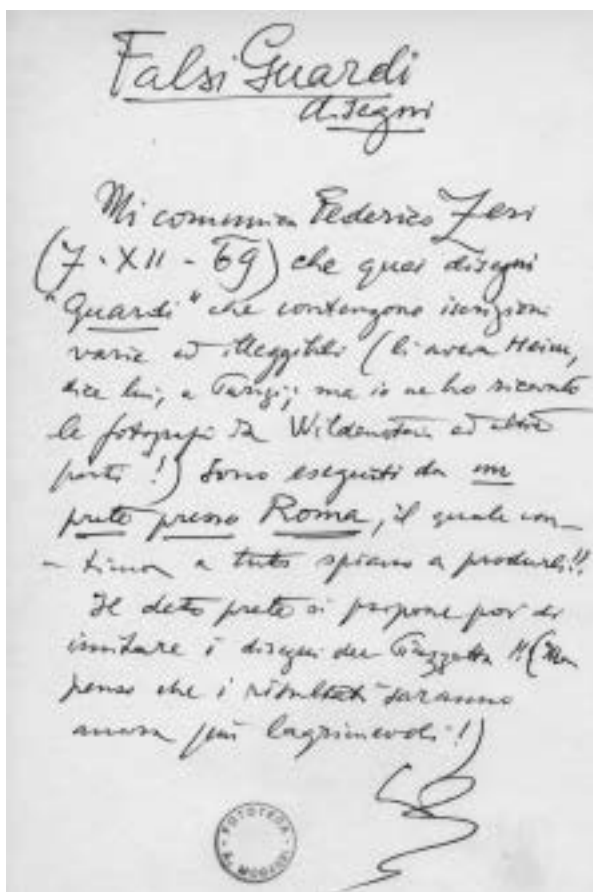 Falsi Guardi
disegni
Mi comunica Federico Zeri
(7-XII-69) che quei disegni
"Guardi" che contengono iscrizioni
varie ed illeggibili (li aveva Heim,
dice lui, a Parigi; ma io ne ho ricevuto
le fotografie da Wildenstein ed altre
parti!) sono eseguiti da un
prete presso Roma, il quale con-
-tinua a tutto spiano a produrli!!
Il detto prete si propone poi di
imitare i disegni del Piazzetta!! (Ma
penso che i risultati saranno
ancora più lagrimevoli!)
FOTOTECA
A. MORASSI